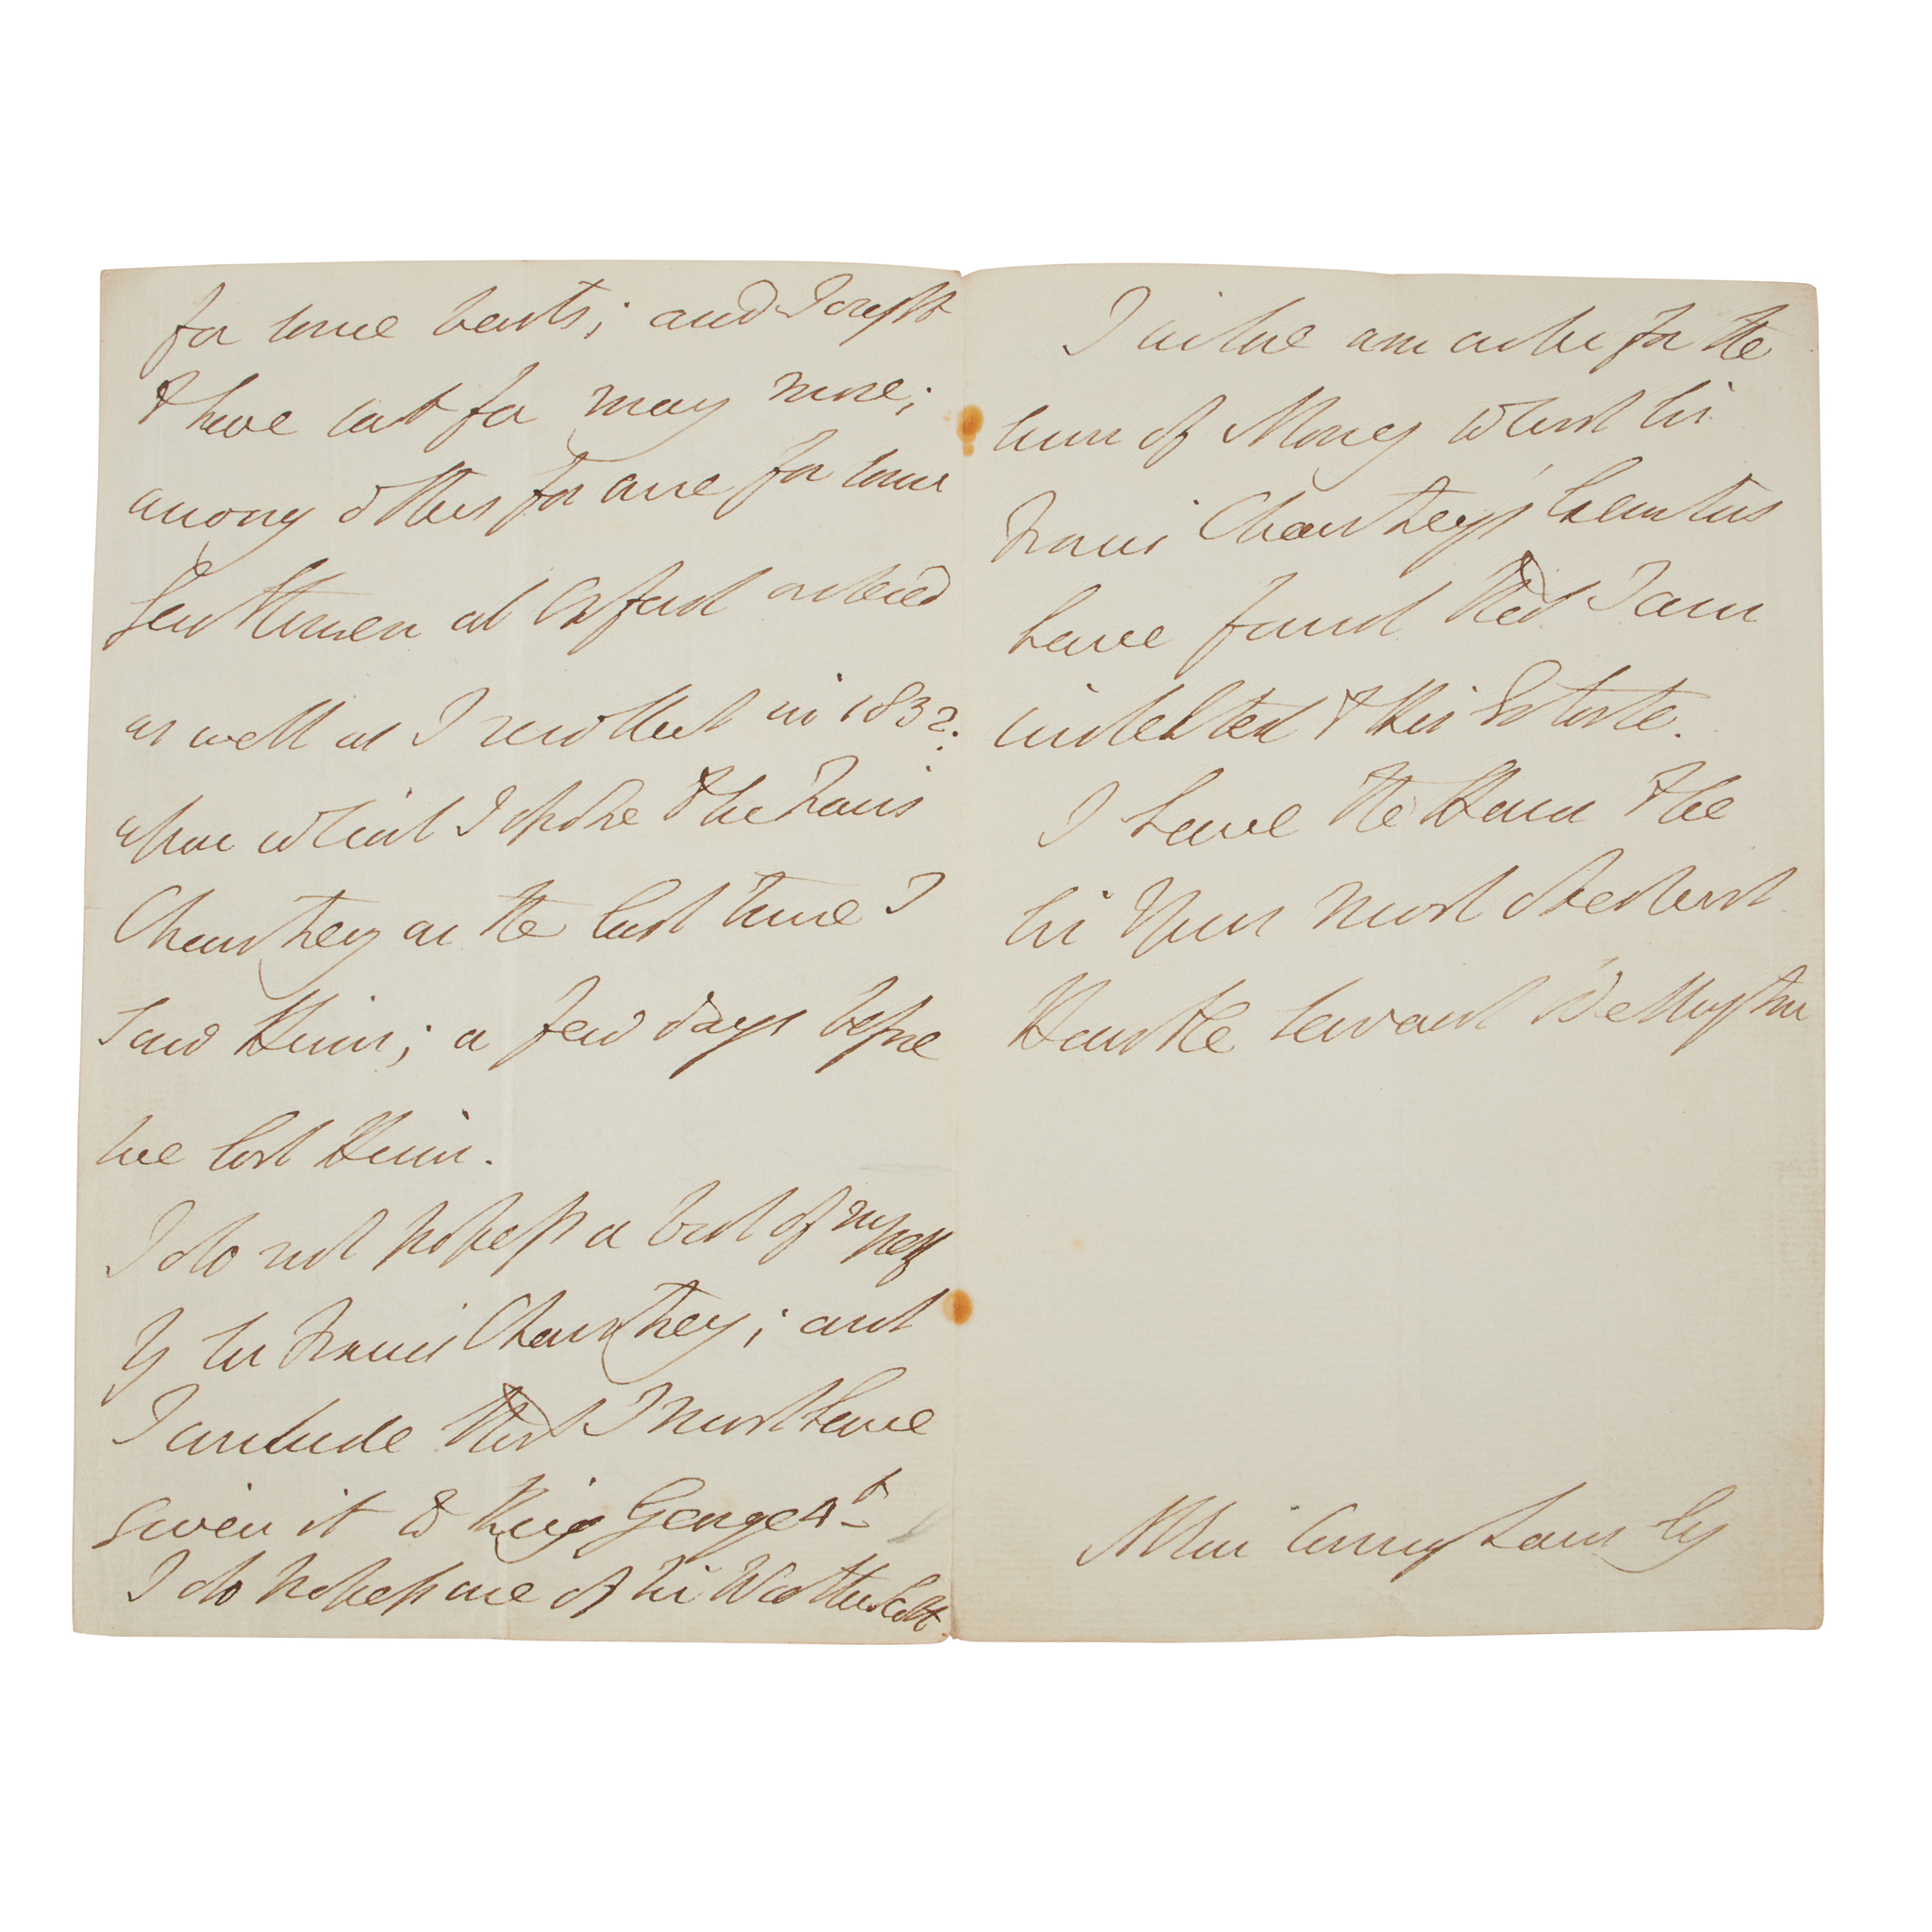 for some busts; and I ought
to have sat for many more;
among others for one for some
Gentlemen at Oxford ordered
as well as I recollect in 1832;
upon which I spoke to Sir Francis
Chantrey on the last time I
saw Him; a few days before
we lost Him.
I do not possess a bust of myself
by Sir Francis Chantrey; and
I conclude that I must have
given it to King George 4th
I do possess one of Sir Walter Scott
I inclose an order for the
sum of Money which Sir
Francis Chantrey's Executors
have found that I am
indebted to His Estate.
I have the Honor to be
Sir Your most obedient
Humble Servant Wellington
Allan Cunningham Esq